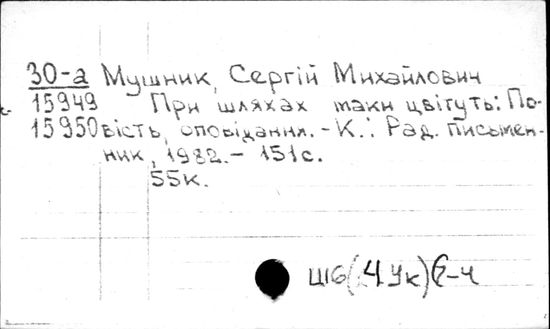 30-а Мушник, Сергій Михайлович
15949 При шляхах маки цвітуть: По-
15950 вість, оповідання. - К.: Рад. письмен-
ник, 1982. - 151с.
55к.
Ш6(4Ук)6-4